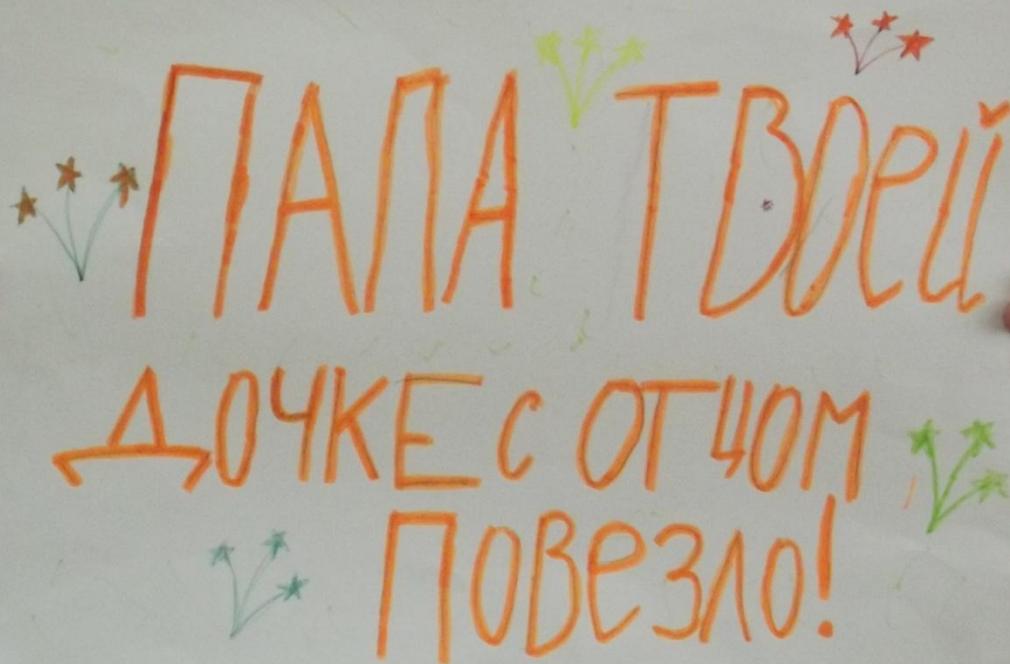 ПАПА ТВОЕЙ
ДОЧКЕ С ОТЦОМ
ПОВЕЗЛО!